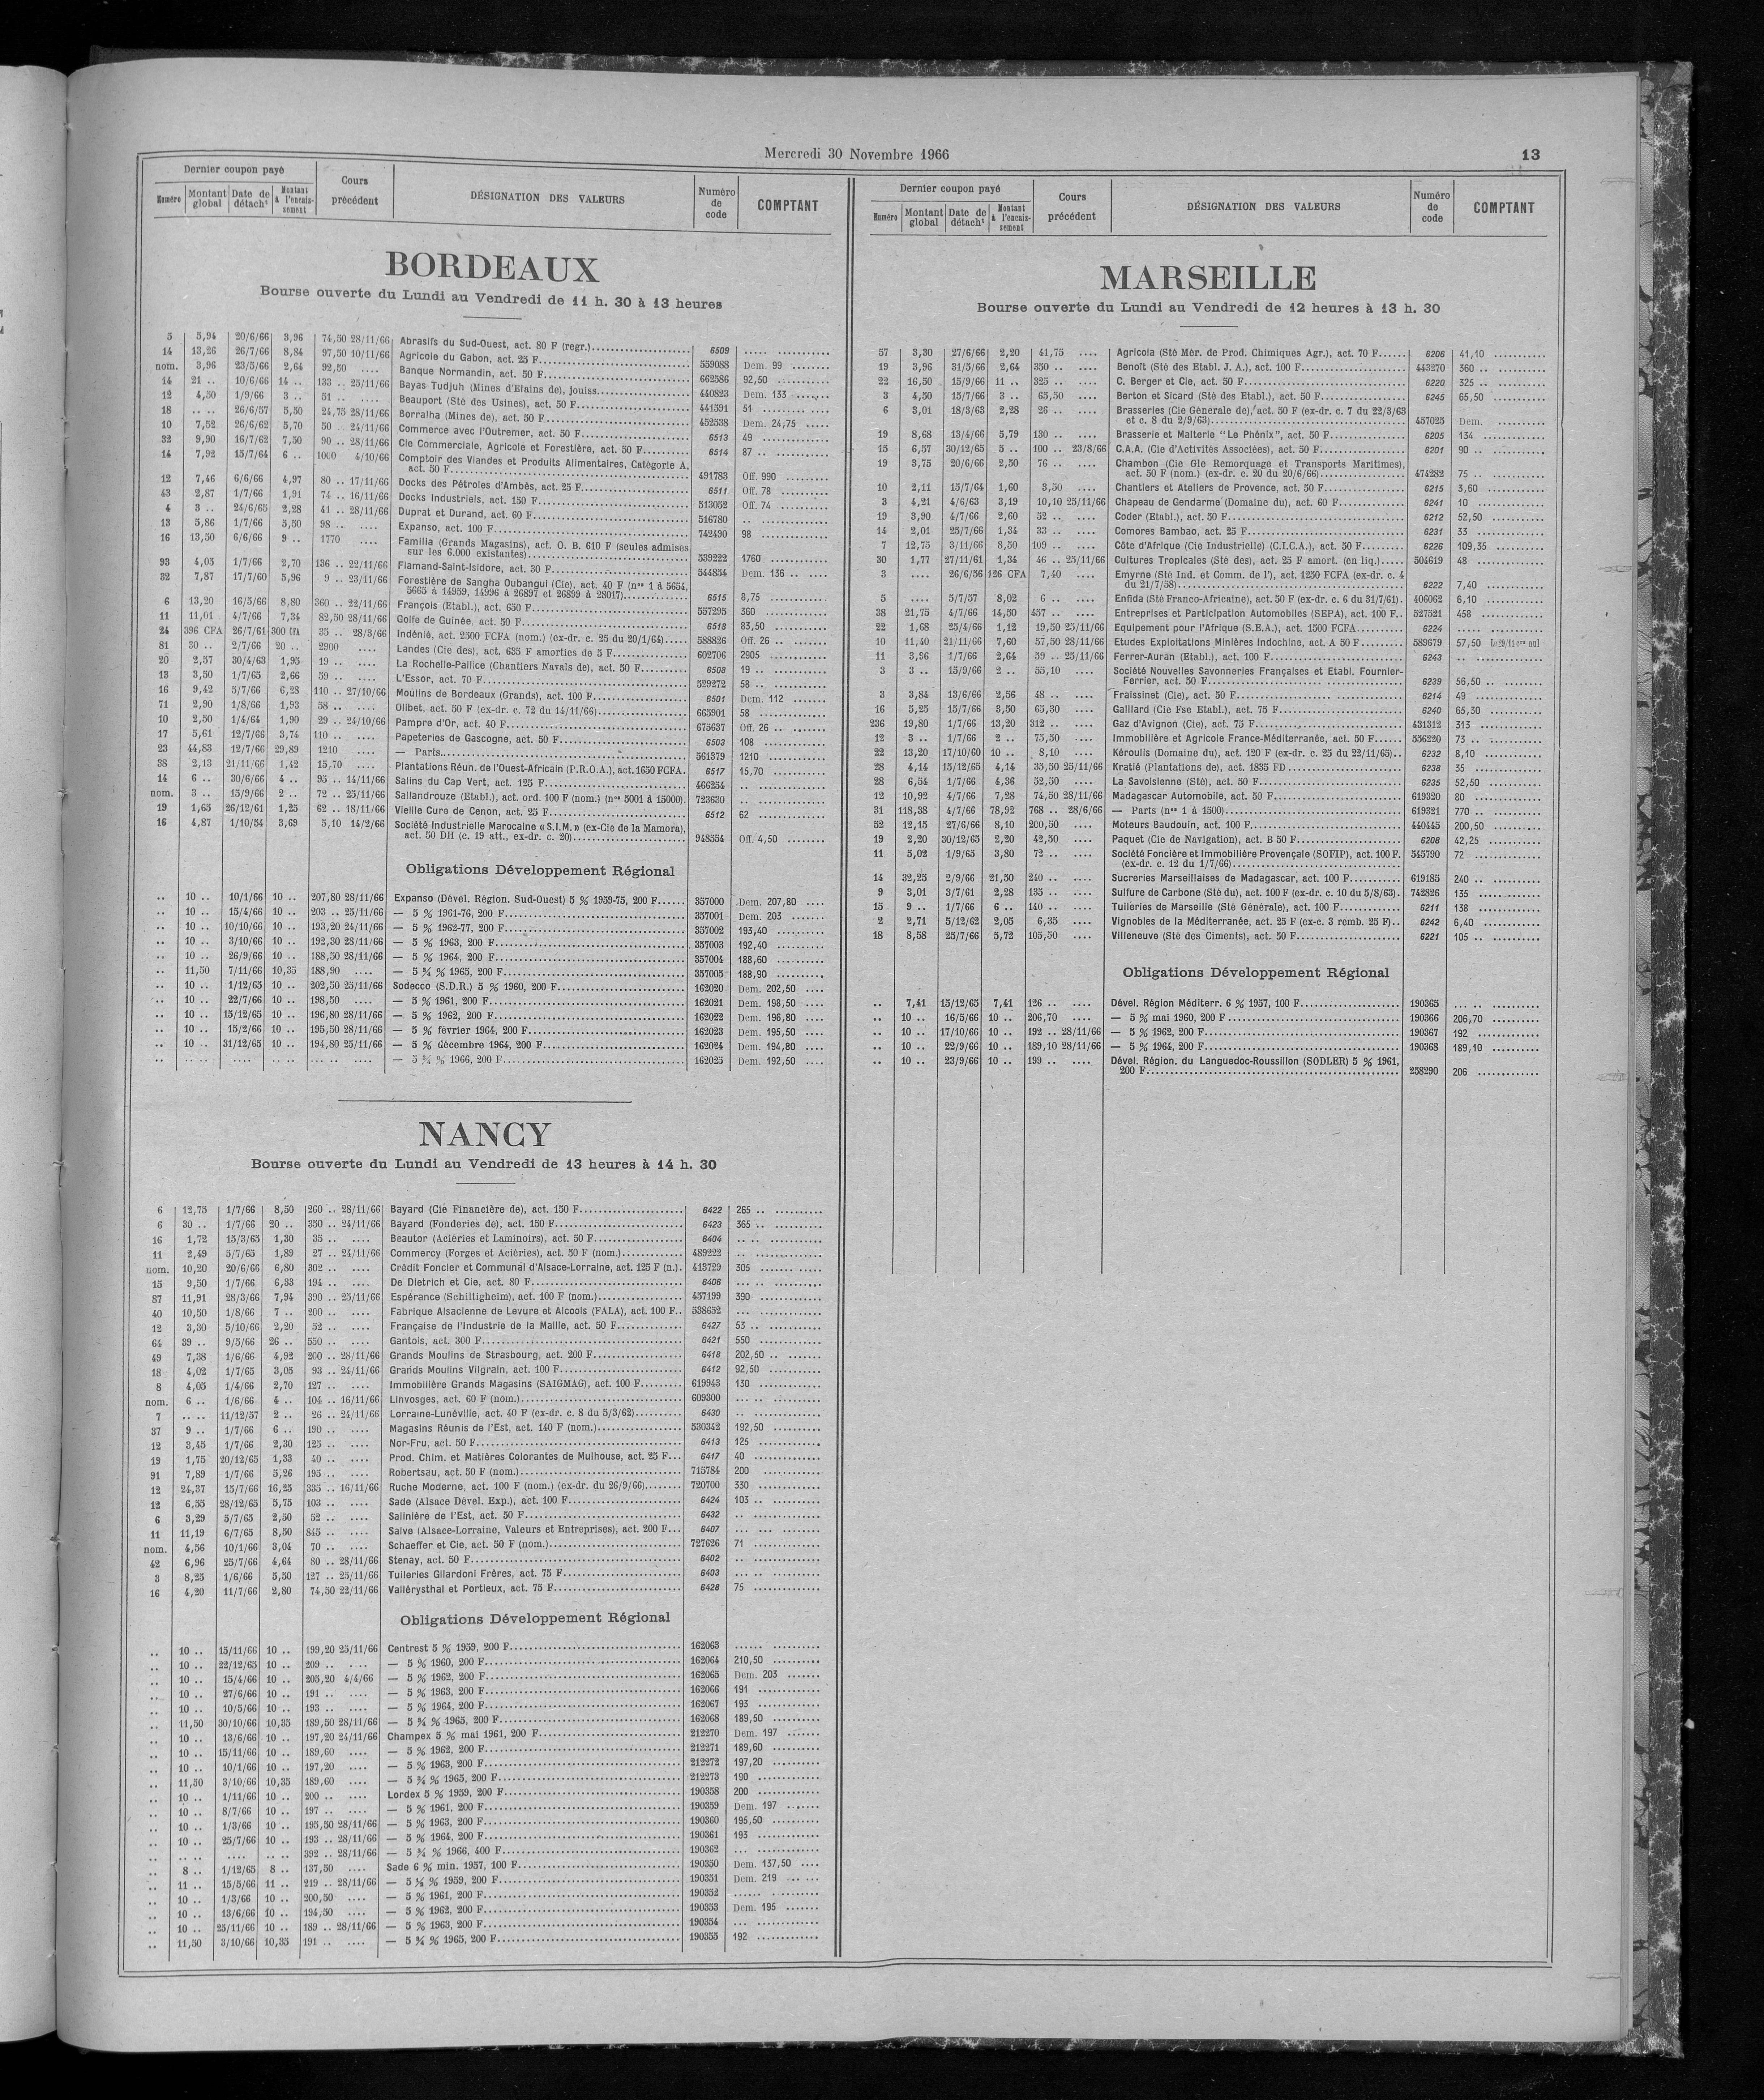 Mercredi 30 Novembre 1966
13
Dernier coupon payé
Numéro Montant global Date de détacht Montant à l'encaissement
Cours précédent
DÉSIGNATION DES VALEURS
Numéro de code
COMPTANT
BORDEAUX
Bourse ouverte du Lundi au Vendredi de 11 h. 30 à 13 heures
5 5,94 20/6/66 3,96 74,50 28/11/66 Abrasifs du Sud-Ouest, act. 80 F (regr.) 6509 ..... ...........
14 13,26 26/7/66 8,84 97,50 10/11/66 Agricole du Gabon, act. 25 F 559088 Dem. 99
nom. 3,96 23/5/66 2,64 92,50 .... Banque Normandin, act. 50 F 662586 92,50
14 21 .. 10/6/66 14 .. 133 .. 25/11/66 Bayas Tudjuh (Mines d'Etains de), jouiss. 440823 Dem. 133
12 4,50 1/9/66 3 .. 51 .. .... Beauport (Sté des Usines), act. 50 F 441591 51
18 .. .. 26/6/57 5,50 24,75 28/11/66 Borralha (Mines de), act. 50 F 452538 Dem. 24,75
10 7,52 26/6/62 5,70 50 .. 24/11/66 Commerce avec l'Outremer, act. 50 F 6513 49
32 9,90 16/7/62 7,50 90 .. 28/11/66 Cie Commerciale, Agricole et Forestière, act. 50 F 6514 87 ..
14 7,92 15/7/64 6 .. 1000 4/10/66 Comptoir des Viandes et Produits Alimentaires, Catégorie A,
act. 50 F 491783 Off. 990
12 7,46 6/6/66 4,97 80 .. 17/11/66 Docks des Pétroles d'Ambès, act. 25 F 6511 Off. 78
43 2,87 1/7/66 1,91 74 .. 16/11/66 Docks Industriels, act. 150 F 513052 Off. 74
4 3 .. 24/6/65 2,28 41 .. 28/11/66 Duprat et Durand, act. 60 F 516780 ..
13 5,86 1/7/66 5,50 98 .. .... Expanso, act. 100 F 742490 98
16 13,50 6/6/66 9 .. 1770 .... Familia (Grands Magasins), act. O. B. 610 F (seules admises
sur les 6.000 existantes) 539222 1760
93 4,05 1/7/66 2,70 136 .. 22/11/66 Flamand-Saint-Isidore, act. 30 F 544854 Dem. 136 ..
32 7,87 17/7/60 5,96 9 .. 23/11/66 Forestière de Sangha Oubangui (Cie), act. 40 F (nos 1 à 5654,
5665 à 14959, 14996 à 26897 et 26899 à 28017) 6515 8,75
6 13,20 16/5/66 8,80 360 .. 22/11/66 François (Etabl.), act. 650 F 557295 360
11 11,01 4/7/66 7,34 82,50 28/11/66 Golfe de Guinée, act. 50 F 6518 83,50
24 396 CFA 26/7/61 300 CFA 35 .. 28/3/66 Indénié, act. 2500 FCFA (nom.) (ex-dr. c. 25 du 20/1/64) 588826 Off. 26 ..
81 30 .. 2/7/66 20 .. 2900 .... Landes (Cie des), act. 635 F amorties de 5 F 602706 2905
20 2,57 30/4/63 1,95 19 .. .... La Rochelle-Pallice (Chantiers Navals de), act. 50 F 6508 19 ..
13 3,50 1/7/65 2,66 59 .. .... L'Essor, act. 70 F 529272 58 ..
16 9,42 5/7/66 6,28 110 .. 27/10/66 Moulins de Bordeaux (Grands), act. 100 F 6501 Dem. 112
71 2,90 1/8/66 1,93 58 .. .... Olibet, act. 50 F (ex-dr. c. 72 du 14/11/66) 665901 58
10 2,50 1/4/64 1,90 29 .. 24/10/66 Pampre d'Or, act. 40 F 675637 Off. 26 ..
17 5,61 12/7/66 3,74 110 .. .... Papeteries de Gascogne, act. 50 F 6503 108
23 44,83 12/7/66 29,89 1210 .... — Parts 561379 1210
38 2,13 21/11/66 1,42 15,70 .... Plantations Réun. de l'Ouest-Africain (P.R.O.A.), act. 1650 FCFA. 6517 15,70
14 6 .. 30/6/66 4 .. 95 .. 14/11/66 Salins du Cap Vert, act. 125 F 466254 ..
nom. 3 .. 15/9/66 2 .. 72 .. 25/11/66 Sallandrouze (Etabl.), act. ord. 100 F (nom.) (nos 5001 à 15000). 723630 ..
19 1,65 26/12/61 1,25 62 .. 18/11/66 Vieille Cure de Cenon, act. 25 F 6512 62
16 4,87 1/10/54 3,69 5,10 14/2/66 Société Industrielle Marocaine « S.I.M. » (ex-Cie de la Mamora),
act. 50 DH (c. 19 att., ex-dr. c. 20) 948554 Off. 4,50
Obligations Développement Régional
.. 10 .. 10/1/66 10 .. 207,80 28/11/66 Expanso (Dével. Région. Sud-Ouest) 5 % 1959-75, 200 F 357000 Dem. 207,80
.. 10 .. 15/4/66 10 .. 203 .. 25/11/66 — 5 % 1961-76, 200 F 357001 Dem. 203
.. 10 .. 10/10/66 10 .. 193,20 24/11/66 — 5 % 1962-77, 200 F 357002 193,40
.. 10 .. 3/10/66 10 .. 192,30 28/11/66 — 5 % 1963, 200 F 357003 192,40
.. 10 .. 26/9/66 10 .. 188,50 28/11/66 — 5 % 1964, 200 F 357004 188,60
.. 11,50 7/11/66 10,35 188,90 .... — 5 ¾ % 1965, 200 F 357005 188,90
.. 10 .. 1/12/65 10 .. 202,50 25/11/66 Sodecco (S.D.R.) 5 % 1960, 200 F 162020 Dem. 202,50
.. 10 .. 22/7/66 10 .. 198,50 .... — 5 % 1961, 200 F 162021 Dem. 198,50
.. 10 .. 15/12/65 10 .. 196,80 28/11/66 — 5 % 1962, 200 F 162022 Dem. 196,80
.. 10 .. 15/2/66 10 .. 195,50 28/11/66 — 5 % février 1964, 200 F 162023 Dem. 195,50
.. 10 .. 31/12/65 10 .. 194,80 25/11/66 — 5 % décembre 1964, 200 F 162024 Dem. 194,80
.. .. .. .... .. .. ... .. .... — 5 ¾ % 1966, 200 F 162025 Dem. 192,50
NANCY
Bourse ouverte du Lundi au Vendredi de 13 heures à 14 h. 30
6 12,75 1/7/66 8,50 260 .. 28/11/66 Bayard (Cie Financière de), act. 150 F 6422 265 ..
6 30 .. 1/7/66 20 .. 350 .. 24/11/66 Bayard (Fonderies de), act. 150 F 6423 365 ..
16 1,72 15/3/65 1,30 35 .. .... Beautor (Aciéries et Laminoirs), act. 50 F 6404 .. ..
11 2,49 5/7/65 1,89 27 .. 24/11/66 Commercy (Forges et Aciéries), act. 50 F (nom.) 489222 ..
nom. 10,20 20/6/66 6,80 302 .. .... Crédit Foncier et Communal d'Alsace-Lorraine, act. 125 F (n.). 413729 305
15 9,50 1/7/66 6,33 194 .. .... De Dietrich et Cie, act. 80 F 6406 ... ..
87 11,91 28/3/66 7,94 390 .. 25/11/66 Espérance (Schiltigheim), act. 100 F (nom.) 457199 390
40 10,50 1/8/66 7 .. 200 .. .... Fabrique Alsacienne de Levure et Alcools (FALA), act. 100 F.. 538652 ...
12 3,30 5/10/66 2,20 52 .. .... Française de l'Industrie de la Maille, act. 50 F 6427 53 ..
64 39 .. 9/5/66 26 .. 550 .. .... Gantois, act. 300 F 6421 550
49 7,38 1/6/66 4,92 200 .. 28/11/66 Grands Moulins de Strasbourg, act. 200 F 6418 202,50 ..
18 4,02 1/7/65 3,05 93 .. 24/11/66 Grands Moulins Vilgrain, act. 100 F 6412 92,50
8 4,05 1/4/66 2,70 127 .. .... Immobilière Grands Magasins (SAIGMAG), act. 100 F 619943 130
nom. 6 .. 1/6/66 4 .. 104 .. 16/11/66 Linvosges, act. 60 F (nom.) 609300 ... ..
7 .. .. 11/12/57 2 .. 26 .. 24/11/66 Lorraine-Lunéville, act. 40 F (ex-dr. c. 8 du 5/3/62) 6430 ..
37 9 .. 1/7/66 6 .. 190 .. .... Magasins Réunis de l'Est, act. 140 F (nom.) 530342 192,50
12 3,45 1/7/66 2,30 125 .. .... Nor-Fru, act. 50 F 6413 125
19 1,75 20/12/65 1,33 40 .. .... Prod. Chim. et Matières Colorantes de Mulhouse, act. 25 F 6417 40
91 7,89 1/7/66 5,26 195 .. .... Robertsau, act. 50 F (nom.) 715784 200
12 24,37 15/7/66 16,25 335 .. 16/11/66 Ruche Moderne, act. 100 F (nom.) (ex-dr. du 26/9/66) 720700 330
12 6,55 28/12/65 5,75 103 .. .... Sade (Alsace Dével. Exp.), act. 100 F 6424 103 ..
6 3,29 5/7/65 2,50 52 .. .... Salinière de l'Est, act. 50 F 6432 ..
11 11,19 6/7/65 8,50 845 .. .... Salve (Alsace-Lorraine, Valeurs et Entreprises), act. 200 F 6407 ... ...
nom. 4,56 10/1/66 3,04 70 .. .... Schaeffer et Cie, act. 50 F (nom.) 727626 71
42 6,96 25/7/66 4,64 80 .. 28/11/66 Stenay, act. 50 F 6402 ..
3 8,25 1/6/66 5,50 127 .. 25/11/66 Tuileries Gilardoni Frères, act. 75 F 6403 ... ..
16 4,20 11/7/66 2,80 74,50 22/11/66 Vallérysthal et Portieux, act. 75 F 6428 75
Obligations Développement Régional
.. 10 .. 15/11/66 10 .. 199,20 25/11/66 Centrest 5 % 1959, 200 F 162063 ......
.. 10 .. 22/12/65 10 .. 209 .. .... — 5 % 1960, 200 F 162064 210,50
.. 10 .. 15/4/66 10 .. 205,20 4/4/66 — 5 % 1962, 200 F 162065 Dem. 203
.. 10 .. 27/6/66 10 .. 191 .. .... — 5 % 1963, 200 F 162066 191
.. 10 .. 10/5/66 10 .. 193 .. .... — 5 % 1964, 200 F 162067 193
.. 11,50 30/10/66 10,35 189,50 28/11/66 — 5 ¾ % 1965, 200 F 162068 189,50
.. 10 .. 13/6/66 10 .. 197,20 24/11/66 Champex 5 % mai 1961, 200 F 212270 Dem. 197
.. 10 .. 15/11/66 10 .. 189,60 .... — 5 % 1962, 200 F 212271 189,60
.. 10 .. 10/1/66 10 .. 197,20 .... — 5 % 1963, 200 F 212272 197,20
.. 11,50 3/10/66 10,35 189,60 .... — 5 ¾ % 1965, 200 F 212273 190
.. 10 .. 1/11/66 10 .. 200 .. .... Lordex 5 % 1959, 200 F 190358 200
.. 10 .. 8/7/66 10 .. 197 .. .... — 5 % 1961, 200 F 190359 Dem. 197
.. 10 .. 1/3/66 10 .. 195,50 28/11/66 — 5 % 1963, 200 F 190360 195,50
.. 10 .. 25/7/66 10 .. 193 .. 28/11/66 — 5 % 1964, 200 F 190361 193
.. .. .. .... .. .. 392 .. 28/11/66 — 5 ¾ % 1966, 400 F 190362 ...
.. 8 .. 1/12/65 8 .. 137,50 .... Sade 6 % min. 1957, 100 F 190350 Dem. 137,50
.. 11 .. 15/5/66 11 .. 219 .. 28/11/66 — 5 ½ % 1959, 200 F 190351 Dem. 219
.. 10 .. 1/3/66 10 .. 200,50 .... — 5 % 1961, 200 F 190352 ......
.. 10 .. 13/6/66 10 .. 194,50 .... — 5 % 1962, 200 F 190353 Dem. 195
.. 10 .. 25/11/66 10 .. 189 .. 28/11/66 — 5 % 1963, 200 F 190354 ...
.. 11,50 3/10/66 10,35 191 .. .... — 5 ¾ % 1965, 200 F 190355 192
Dernier coupon payé
Numéro Montant global Date de détacht Montant à l'encaissement
Cours précédent
DÉSIGNATION DES VALEURS
Numéro de code
COMPTANT
MARSEILLE
Bourse ouverte du Lundi au Vendredi de 12 heures à 13 h. 30
57 3,30 27/6/66 2,20 41,75 .... Agricola (Sté Mér. de Prod. Chimiques Agr.), act. 70 F 6206 41,10
19 3,96 31/5/66 2,64 350 .. .... Benoît (Sté des Etabl. J. A.), act. 100 F 443270 360 ..
22 16,50 15/9/66 11 .. 325 .. .... C. Berger et Cie, act. 50 F 6220 325 ..
3 4,50 15/7/66 3 .. 65,50 .... Berton et Sicard (Sté des Etabl.), act. 50 F 6245 65,50
6 3,01 18/3/63 2,28 26 .. .... Brasseries (Cie Générale de), act. 50 F (ex-dr. c. 7 du 22/3/63
et c. 8 du 2/9/63) 457025 Dem.
19 8,68 13/4/66 5,79 130 .. .... Brasserie et Malterie "Le Phénix", act. 50 F 6205 134
15 6,57 30/12/65 5 .. 100 .. 23/8/66 C.A.A. (Cie d'Activités Associées), act. 50 F 6201 90 ..
19 3,75 20/6/66 2,50 76 .. .... Chambon (Cie Gle Remorquage et Transports Maritimes),
act. 50 F (nom.) (ex-dr. c. 20 du 20/6/66) 474282 75 ..
10 2,11 15/7/64 1,60 3,50 .... Chantiers et Ateliers de Provence, act. 50 F 6215 3,60
3 4,21 4/6/63 3,19 10,10 25/11/66 Chapeau de Gendarme (Domaine du), act. 60 F 6241 10
19 3,90 4/7/66 2,60 52 .. .... Coder (Etabl.), act. 50 F 6212 52,50
14 2,01 25/7/66 1,34 33 .. .... Comores Bambao, act. 25 F 6231 33
7 12,75 3/11/66 8,50 109 .. .... Côte d'Afrique (Cie Industrielle) (C.I.C.A.), act. 50 F 6226 109,35
30 1,77 27/11/61 1,34 46 .. 25/11/66 Cultures Tropicales (Sté des), act. 25 F amort. (en liq.) 504619 48
3 .... 26/6/56 126 CFA 7,40 .... Emyrne (Sté Ind. et Comm. de l'), act. 1250 FCFA (ex-dr. c. 4
du 21/7/58) 6222 7,40
5 .... 5/7/57 8,02 6 .. .... Enfida (Sté Franco-Africaine), act. 50 F (ex-dr. c. 6 du 31/7/61). 406062 6,10
38 21,75 4/7/66 14,50 457 .. .... Entreprises et Participation Automobiles (SEPA), act. 100 F.. 527521 458
22 1,68 25/4/66 1,12 19,50 25/11/66 Equipement pour l'Afrique (S.E.A.), act. 1500 FCFA 6224 .....
10 11,40 21/11/66 7,60 57,50 28/11/66 Etudes Exploitations Minières Indochine, act. A 50 F 589679 57,50
11 3,96 1/7/66 2,64 59 .. 25/11/66 Ferrer-Auran (Etabl.), act. 100 F 6243 ..
3 3 .. 15/9/66 2 .. 55,10 .... Société Nouvelles Savonneries Françaises et Etabl. Fournier-
Ferrier, act. 50 F 6239 56,50 ..
3 3,84 13/6/66 2,56 48 .. .... Fraissinet (Cie), act. 50 F 6214 49
16 5,25 15/7/66 3,50 65,30 .... Gaillard (Cie Fse Etabl.), act. 75 F 6240 65,30
236 19,80 1/7/66 13,20 312 .. .... Gaz d'Avignon (Cie), act. 75 F 431312 313
12 3 .. 1/7/66 2 .. 75,50 .... Immobilière et Agricole France-Méditerranée, act. 50 F 556220 73 ..
22 13,20 17/10/60 10 .. 8,10 .... Kéroulis (Domaine du), act. 120 F (ex-dr. c. 25 du 22/11/65).. 6232 8,10
28 4,14 15/12/65 4,14 35,50 25/11/66 Kratié (Plantations de), act. 1835 FD 6238 35
28 6,54 1/7/66 4,36 52,50 .... La Savoisienne (Sté), act. 50 F 6235 52,50
12 10,92 4/7/66 7,28 74,50 28/11/66 Madagascar Automobile, act. 50 F 619320 80
31 118,38 4/7/66 78,92 768 .. 28/6/66 — Parts (nos 1 à 1500) 619321 770 ..
52 12,15 27/6/66 8,10 200,50 .... Moteurs Baudouin, act. 100 F 440445 200,50
19 2,20 30/12/65 2,20 42,50 .... Paquet (Cie de Navigation), act. B 50 F 6208 42,25
11 5,02 1/9/65 3,80 72 .. .... Société Foncière et Immobilière Provençale (SOFIP), act. 100 F.
(ex-dr. c. 12 du 1/7/66) 545790 72
14 32,25 2/9/66 21,50 240 .. .... Sucreries Marseillaises de Madagascar, act. 100 F 619185 240 ..
9 3,01 3/7/61 2,28 135 .. .... Sulfure de Carbone (Sté du), act. 100 F (ex-dr. c. 10 du 5/8/63). 742826 135
15 9 .. 1/7/66 6 .. 140 .. .... Tuileries de Marseille (Sté Générale), act. 100 F 6211 138
2 2,71 5/12/62 2,05 6,35 .... Vignobles de la Méditerranée, act. 25 F (ex-c. 3 remb. 25 F).. 6242 6,40
18 8,58 25/7/66 5,72 105,50 .... Villeneuve (Sté des Ciments), act. 50 F 6221 105 ..
Obligations Développement Régional
.. 7,41 15/12/65 7,41 126 .. .... Dével. Région Méditerr. 6 % 1957, 100 F 190365 ... ..
.. 10 .. 16/5/66 10 .. 206,70 .... — 5 % mai 1960, 200 F 190366 206,70
.. 10 .. 17/10/66 10 .. 192 .. 28/11/66 — 5 % 1962, 200 F 190367 192
.. 10 .. 22/9/66 10 .. 189,10 28/11/66 — 5 % 1964, 200 F 190368 189,10
.. 10 .. 23/9/66 10 .. 199 .. .... Dével. Région. du Languedoc-Roussillon (SODLER) 5 % 1961,
200 F 258290 206